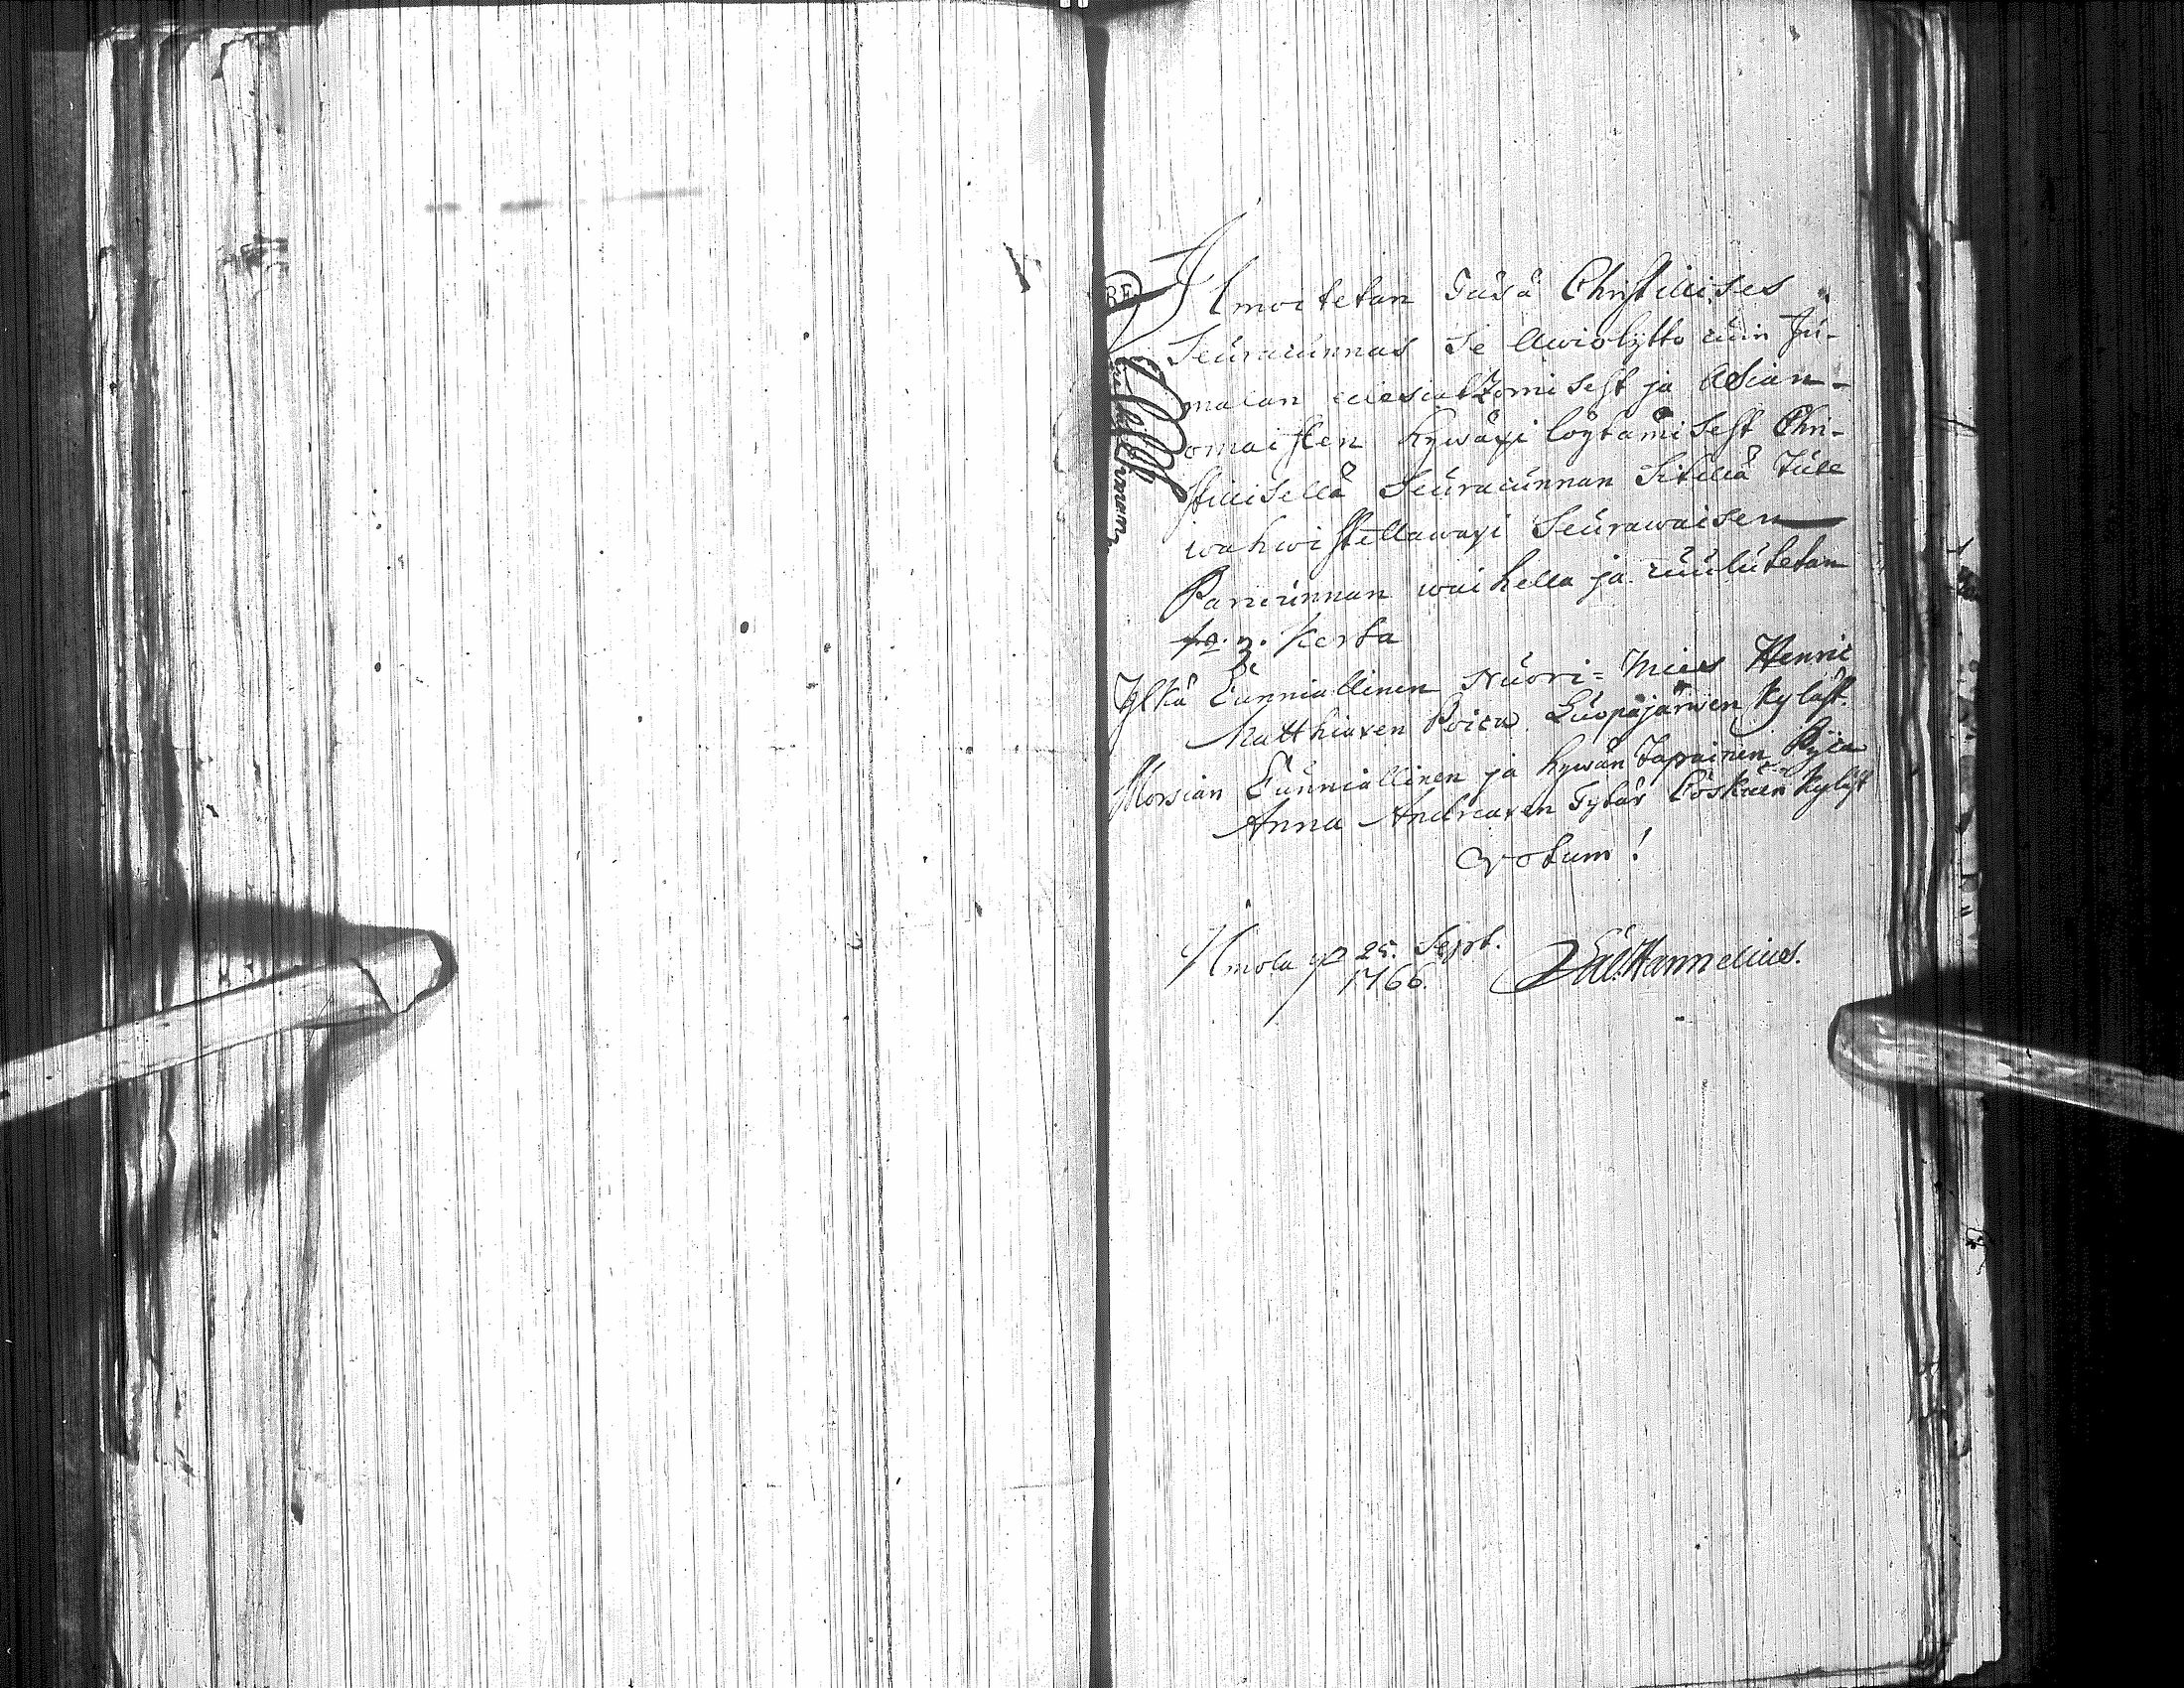 Ilmoitetan Täsä Christilises
Seuracunnas se Awiolijtto cuin Ju-
malan edescatzomisest ja Asian-
omaisten hywäxi löytämisest Chri-
stilisellä Seuracunnan Sitellä tule
wahwistettawaxi Seurawaisen
Paricunnan waihella ja cuulutetan
3. Kerta
Ylkä Cunniallinen Nuori=Mies Henric
Matthiaxen Poica Luopajärwen kyläst.
Morsian Cunniallinen ja hywän tapainen Pijca
Anna Andreaxen Tytär Coskuen kyläst
Votum!
Ilmola d 25. Sept.
1766. Hannelius.